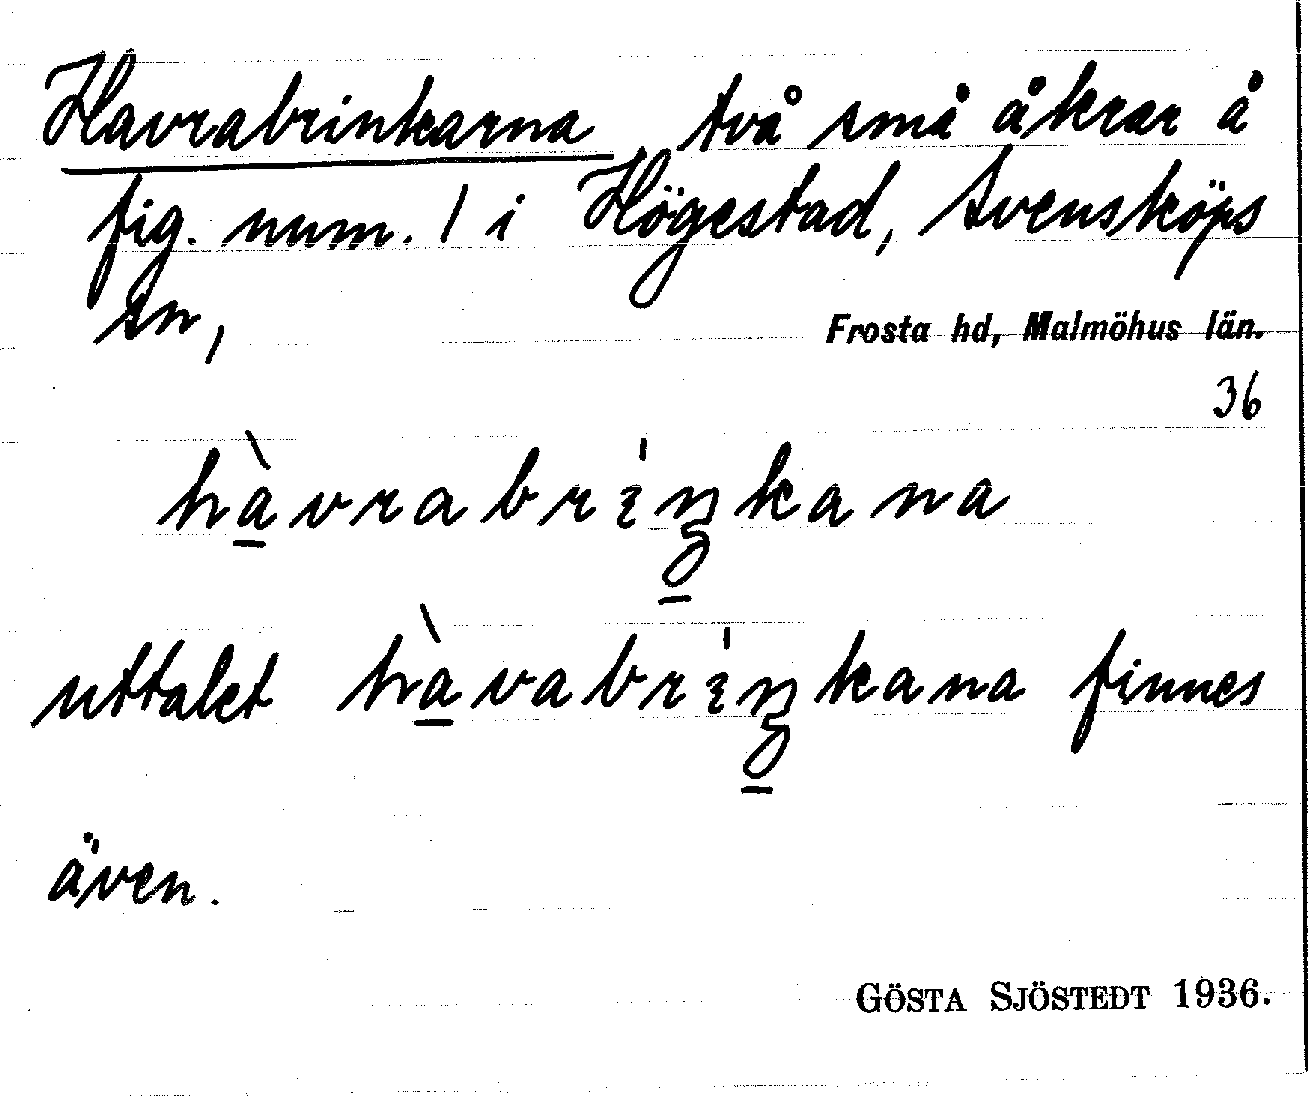 Havrabrinkarna två små åkrar å
fig. num. 1 i Högestad, Svensköps
sn,
Frosta hd, Malmöhus län.
36
hàvrabrıŋkana
uttalet hàvabrıŋkana finnes
även.
GÖSTA SJÖSTEDT 1936.